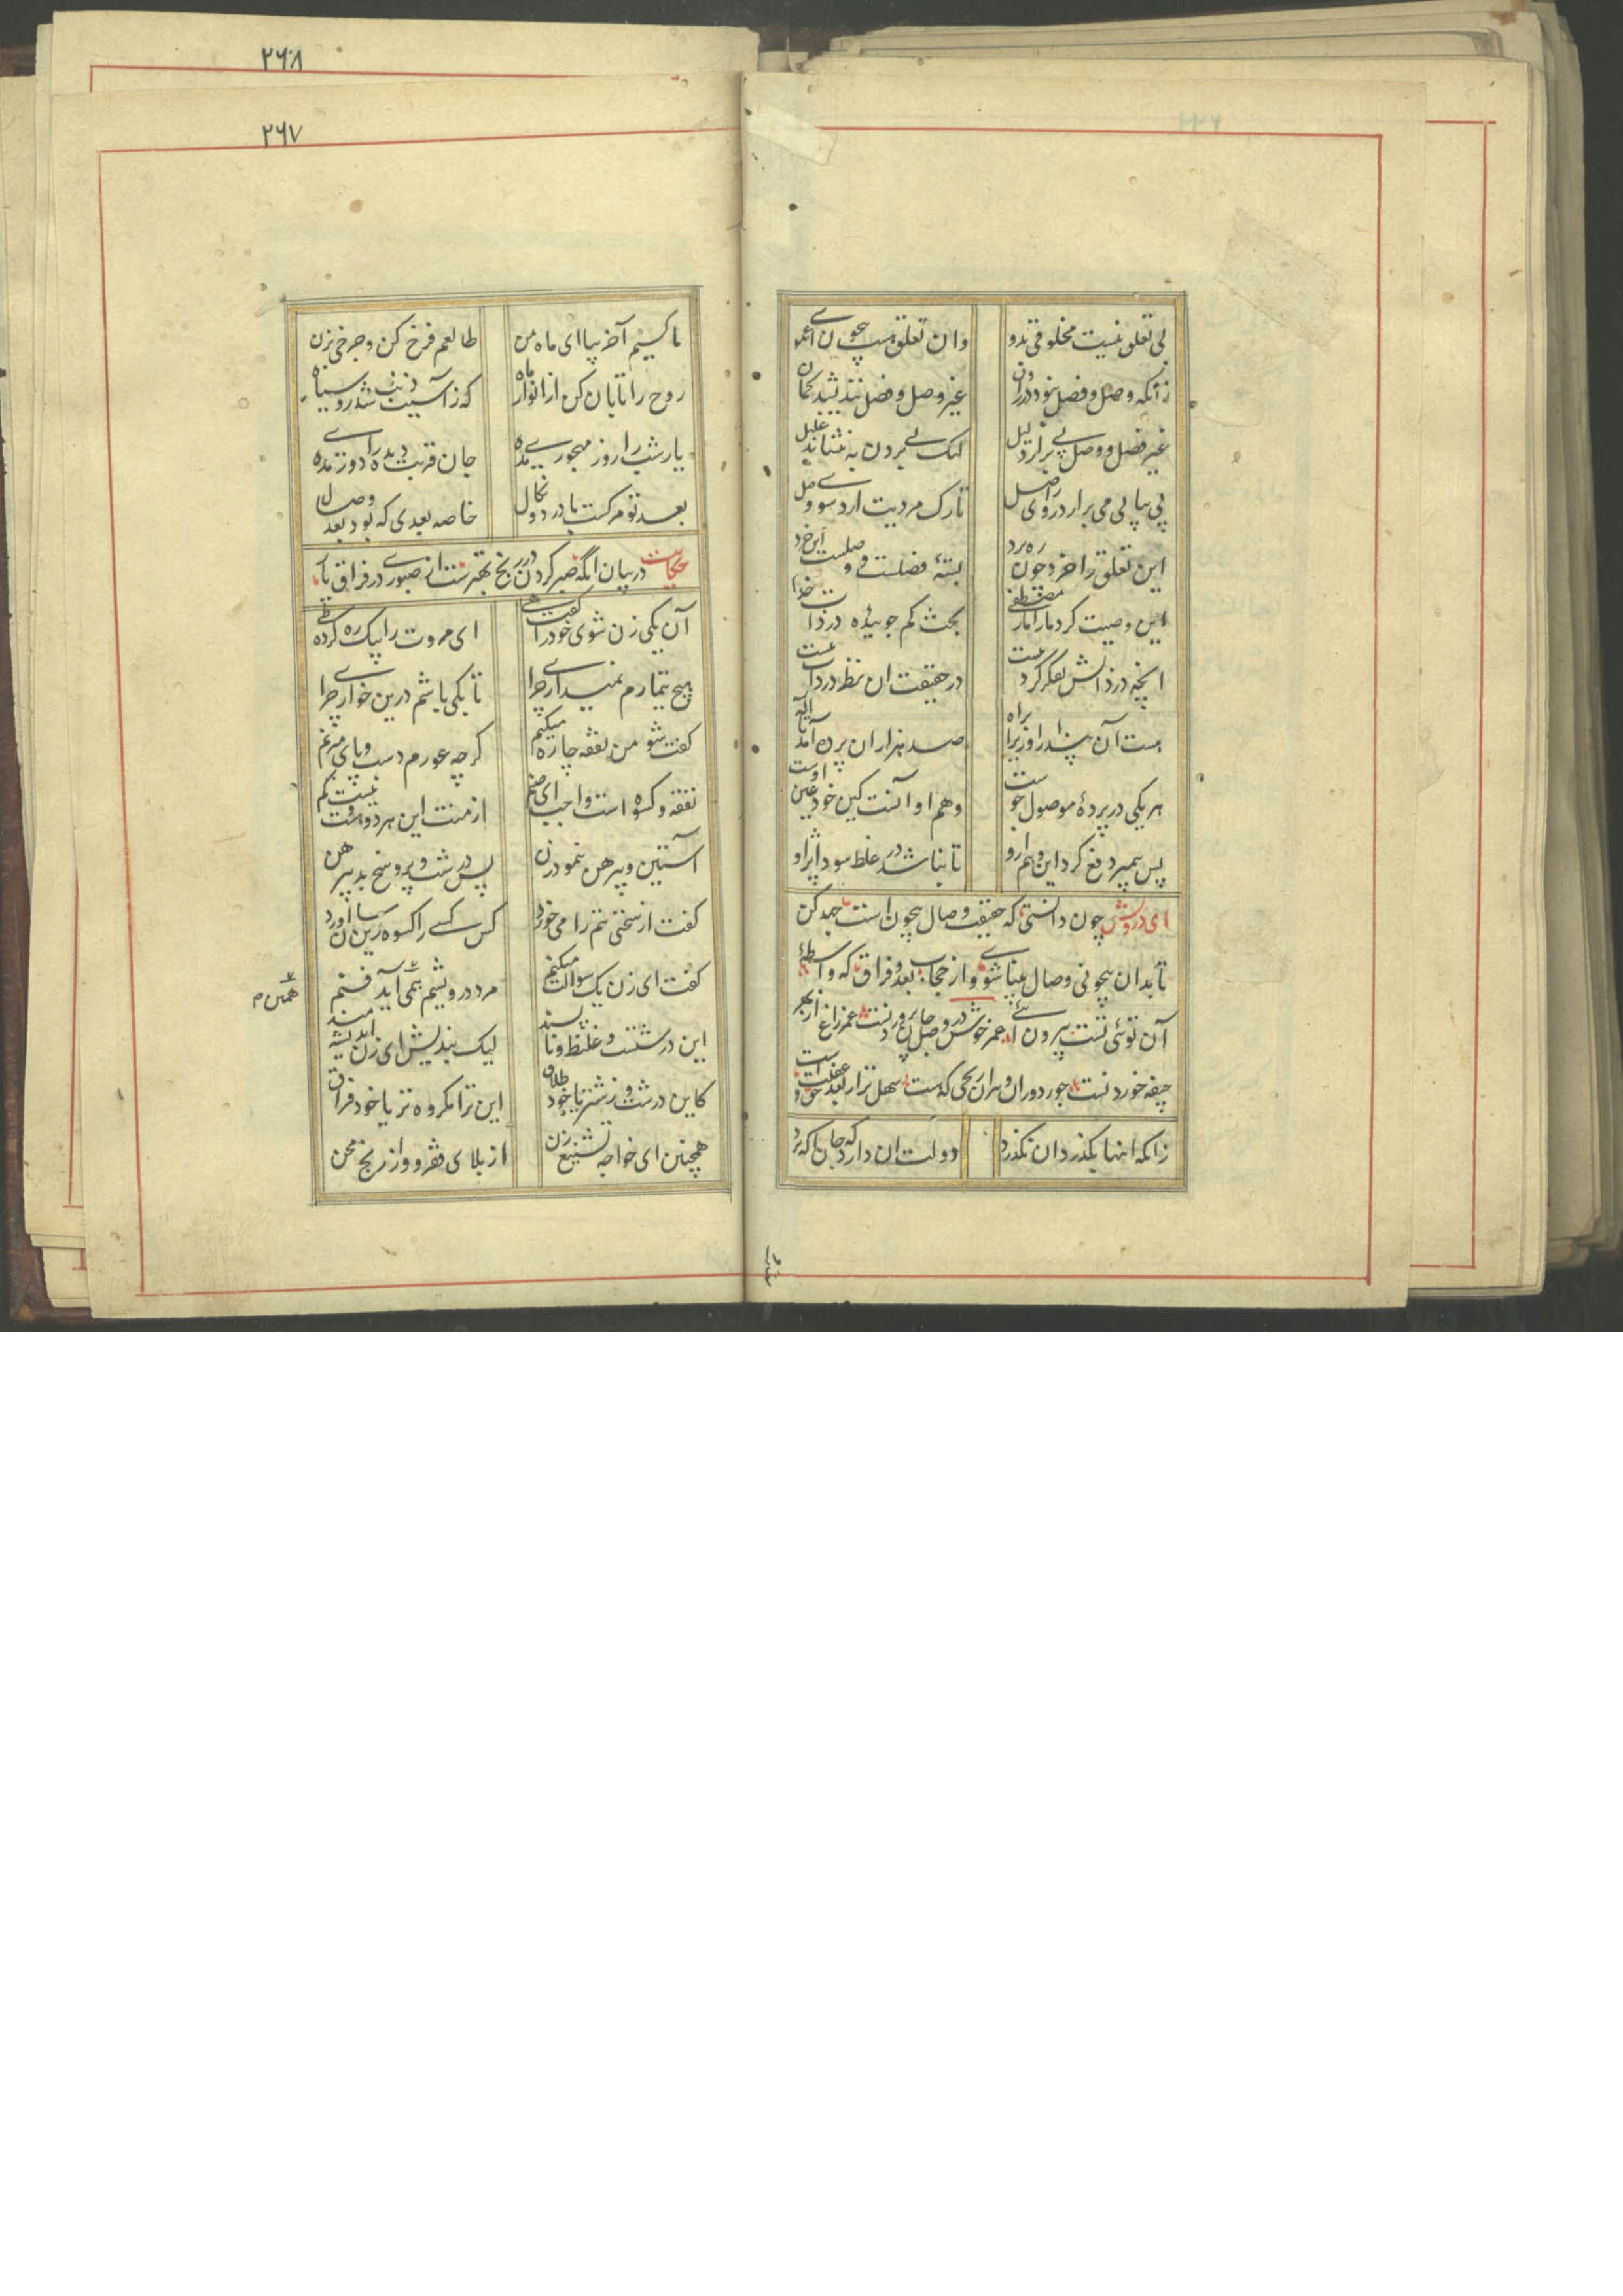 بی تعلق نیست مخلوقی بدو    وان تعلق هست بیچون ای عمو
زانکه وصل و فصل نبود در روان    غیر وصل و فصل نندیشد گمان
غیر فصل و وصل پی بر از دلیل    لیک پی بردن به ننشاند غلیل
پی بپا پی می بر ار دوری ز اصل    تا رگ مردیت ارد سوی وصل
این تعلق را خرد چون ره برد    بستهٔ فصلست و وصلست این خرد
این وصیت کرد ما را مصطفی    بحث کم جوئید در ذات خدا
انچه در ذاتش تفکر کردنیست    در حقیقت ان نظر در ذات نیست
هست آن پندار او زیرا براه    صد هزاران پرده آمد تا اله
هر یکی در پردهٔ موصول جوست    وهم او آنست کین خود عین اوست
پس پیمبر دفع کرد این وهم ازو    تا نباشد در غلط سودا پز او
ای درویش چون دانستی که حقیقت وصال بیچون است جهد کن
تا بدان بیچونی وصال بینا شوی و از حجاب بعد و فراق که واسطهٔ
آن توئی تست بیرون آئی عمر خوش در وصل جان پروردنست عمر زاغ از بهر
جیفه خوردنست جور دوران و هران رنجی که هست سهل تر از بعد حق و غفلت است
زانکه اینها بگذرد ان نگذرد    دولت ان دارد که جان اگه برد
۲۶۸
۲۶۷
ما کییم آخر بیا ای ماه من    طالعم فرخ کن و چرخی بزن
روح را تابان کن از انوار ماه    که ز آسیب ذنب شد رو سیاه
یار شب را روز مهجوری مده    جان قربت دیده را دوری مده
بعد تو مرگست با درد و نکال    خاصه بعدی که بود بعد وصال
حکایت در بیان انکه صبر کردن در رنج بهترست از صبوری در فراق یار
آن یکی زن شوی خود را گفت هی    ای مروت را بیک ره کرده طی
هیچ تیمارم نمیداری چرا    تا بکی باشم درین خواری چرا
گفت شو من نفقه چاره میکنم    گرچه عورم دست و پای میزنم
نفقه و کسوه است واجب ای صنم    از منت این هر دو هست و نیست کم
آستین و پیرهن بنمود زن    بس درشت و پر وسخ بد پیرهن
گفت از سختی تنم را می خورد    کس کسی را کسوه زین سان آورد
گفت ای زن یک سوالت میکنم    مرد درویشم همی آید فنم
همین م
این درشتست و غلیظ و ناپسند    لیک بندیش ای زن اندیشه مند
کاین درشت و زشت تر یا خود طلاق    این ترا مکروه تر یا خود فراق
همچنین ای خواجهٔ تشنیع زن    از بلای فقر و از رنج و محن